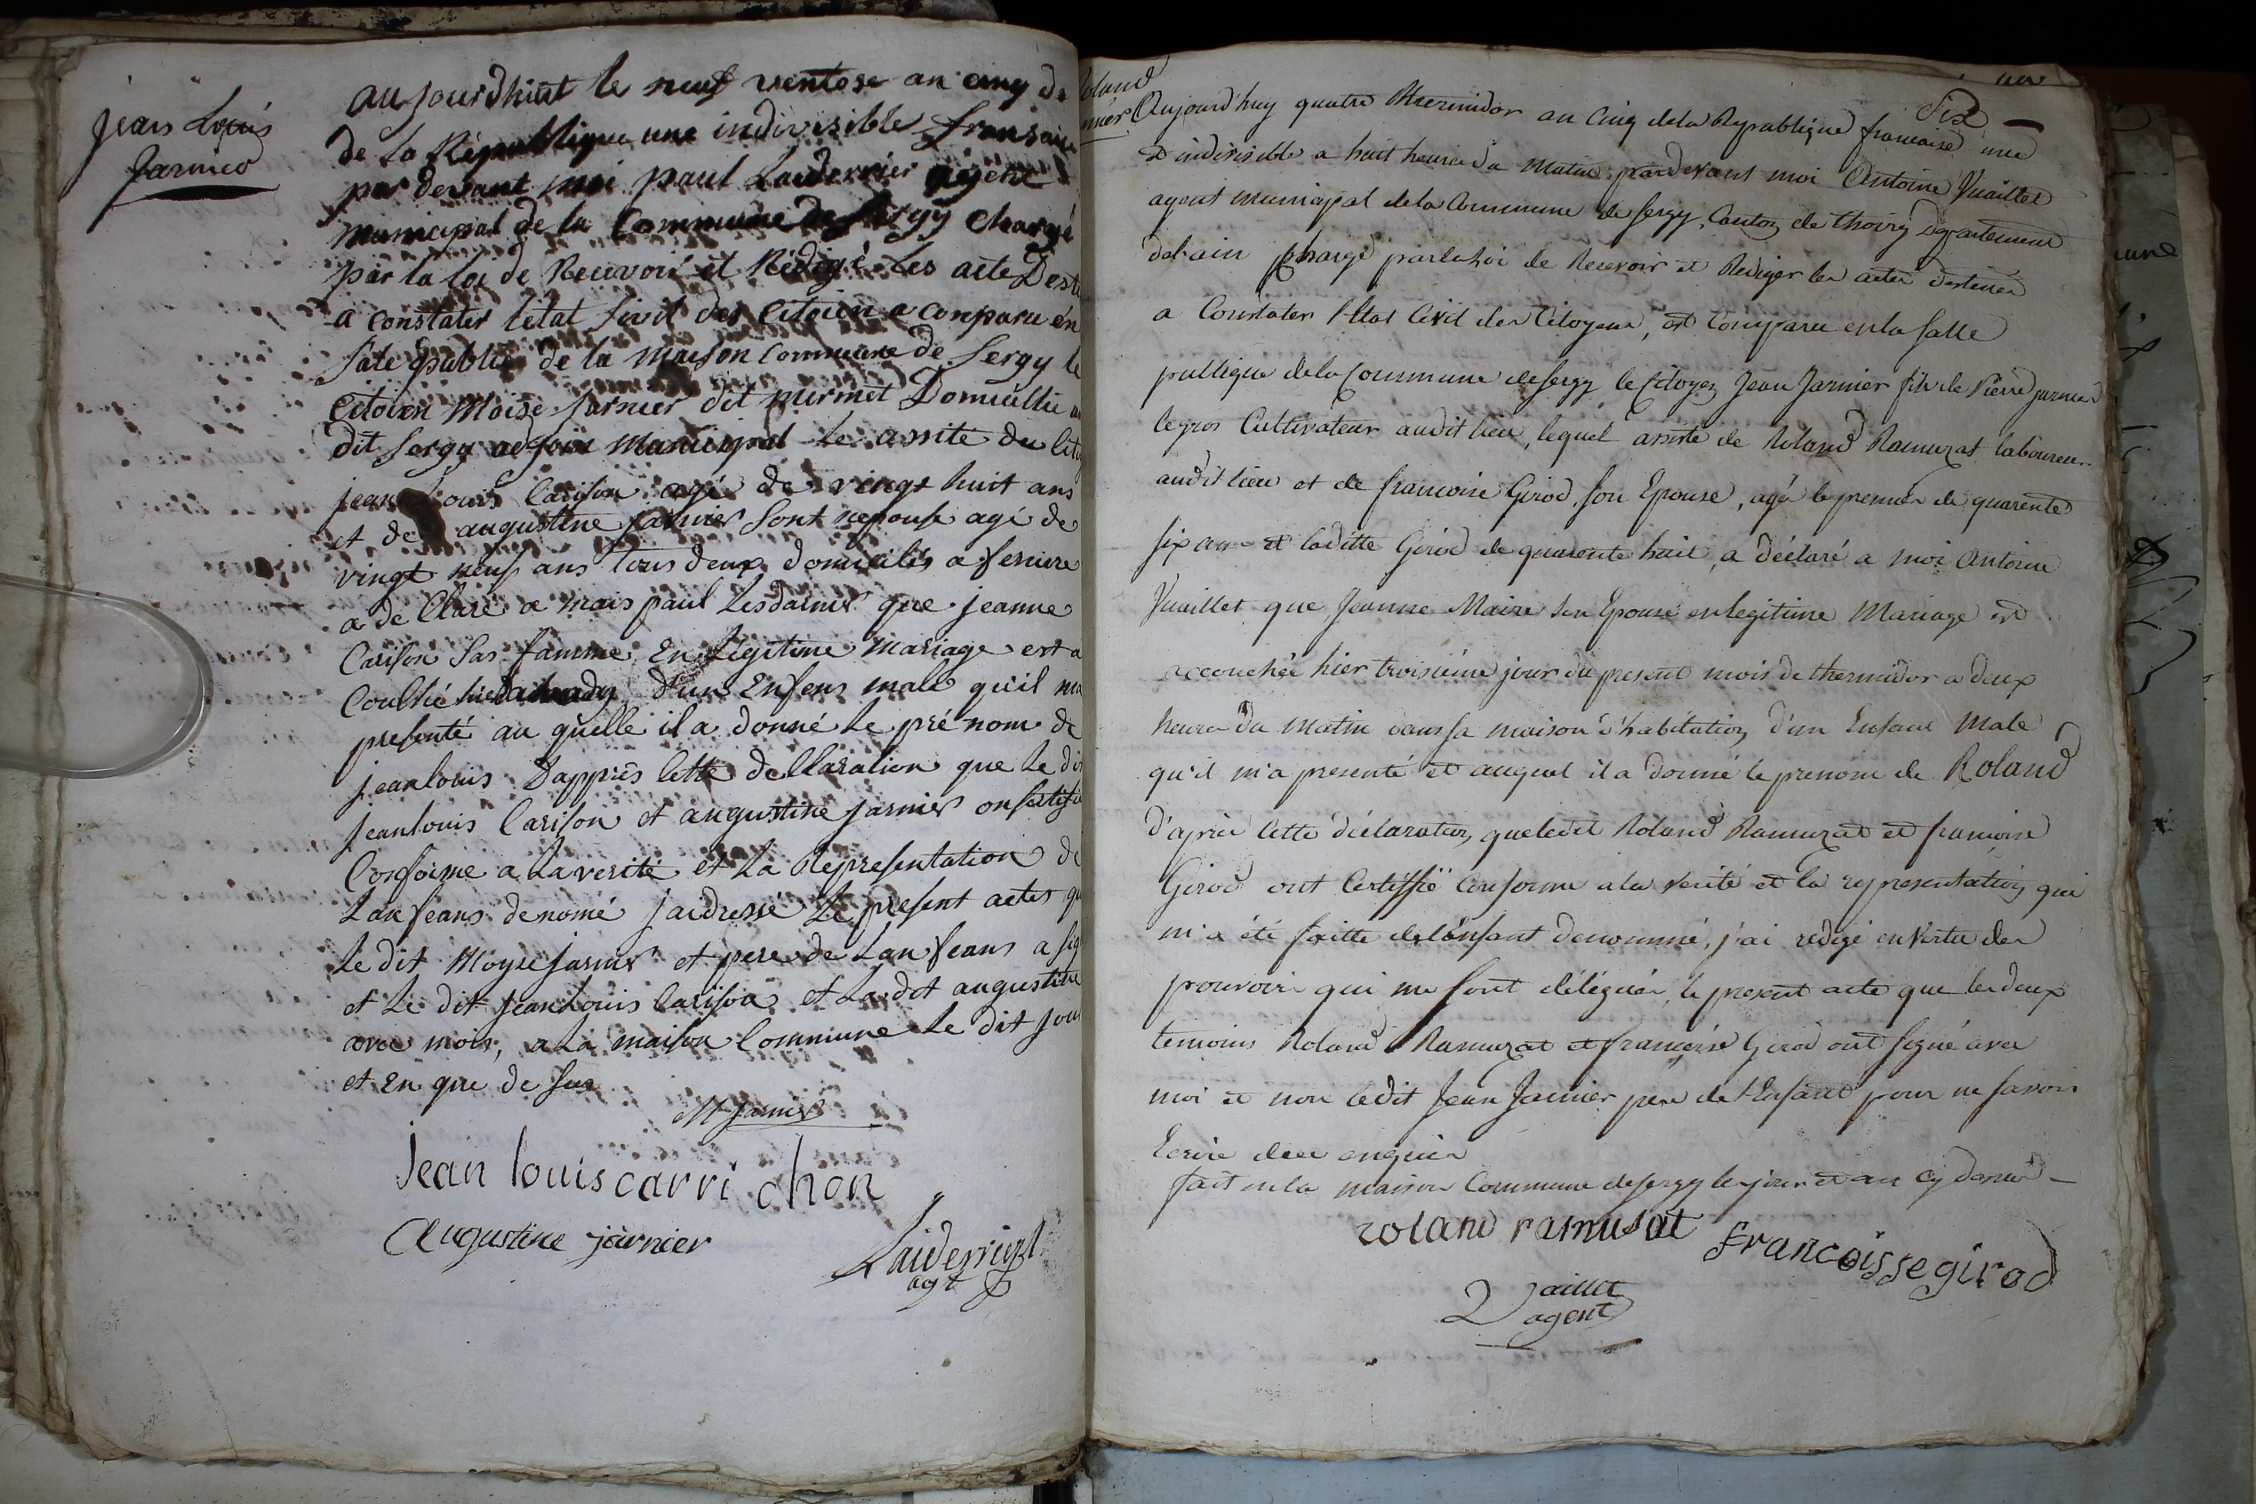 jean Louis
Jarnier
aujourdhuit le neuf ventose an cinq de
de La République une indivisible fransaise
par devant moi paul Laiderrier agent
municipal de la Commune de Sergy chargé
par la loi de Recevoir et Rédigé Les acte Desti
a constater letat sivil des Citoien a conparu en
sale publie de la maison commune de Sergy le
Citoien moise Jarnier dit mermet Domicillie au
dit Sergy adjoin municipal le assité du Cito
jean Louis Carison agé de vingt huit ans
et de augustine Jarnier sont nepouse agé de
vingt neuf ans tous deux domicilés a
a de Clare a mois paul que jeanne
Carison Sas famme En Légitime Mariage est a
Couché d'un Enfens male qu'il ma
presenté au quelle il a donné le pré nom de
jeanlouis D'apprés Cette deLlaration que Le dit
jeanlouis Carison et augustine jarnier on sertifie
Conforme a La verité et La Representation de
Lanfeans denomé jaidressé Le present actes que
Le dit Moyse Jarnier et pere de Lanfeans a sig
et Le dit Jean Louis Carison et La dit augustine
avec mois, a La maison Commune Le dit jour
et en que de sus
M Jarnier
Jean louis carri chon
Augustine jarnier
Laiderrier
agt
Roland
Jarnier
Six
Aujourd'huy quatre thermidor an Cinq de la Republique francaise une
et indivisible a huit heures du Matin pardevant moi Antoine Vuaillet
agent municipal de la Commune de Sergy, Canton de thoiry Département
del'ain chargé par la Loi de Recevoir et Rediger les actes destinés
a Constater l'Etat Civil des Citoyens, est comparu en la salle
publique de la Commune de Sergy le Citoyen Jean Jarnier fils de Pierre Jarnier
legros Cultivateur audit lieu, lequel assisté de Roland Ramuzat laboureur
audit lieu et de francoise Girod, son Epouse, agés le premier de quarente
six ans et laditte Girod de quarante huit, a déclaré a moi Antoine
Vuaillet que Jeanne Maire son Epouse en legitime Mariage est
accouchée hier troisiéme jour du present mois de thermidor a deux
heures du Matin dans sa maison d'habitation d'un Enfant Mâle
qu'il m'a presenté et auquel il a donné le prenom de Roland
d'après Cette déclaration, que ledit Roland Ramuzat et francoise
Girod ont Certiffié Conforme a la Verité et la representation qui
m'a été faitte de l'enfant denommé, j'ai redigé en Vertu des
pouvoirs qui me sont délégués, le present acte que les deux
temoins Roland Ramuzat et françoise Girod ont signé avec
moi et non ledit Jean Jarnier pere de l'Enfant pour ne savoir
Ecrire de ce enquis
fait en la maison Commune de Sergy le jour et an cy dessus
roland ramusat
francoisse girod
Vuaillet
agent